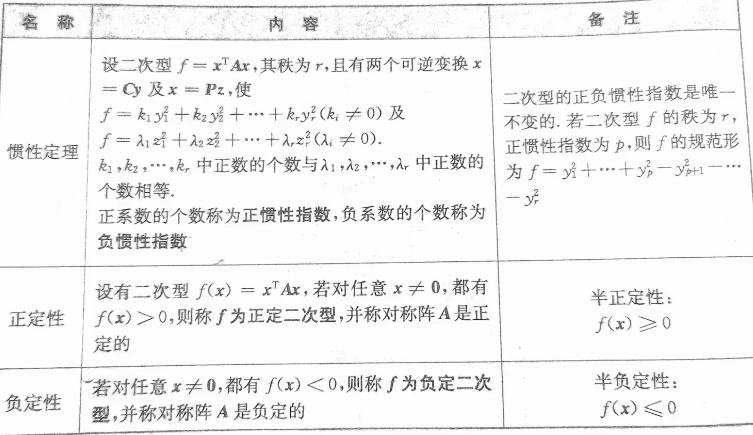 名 称 内 容 备 注
惯性定理
设二次型 f = xᵀAx,其秩为 r,且有两个可逆变换 x
= Cy 及 x = Pz,使
f = k₁y₁² + k₂y₂² + ⋯ + kᵣyᵣ²(kᵢ ≠ 0) 及
f = λ₁z₁² + λ₂z₂² + ⋯ + λᵣzᵣ²(λᵢ ≠ 0).
k₁,k₂,⋯,kᵣ 中正数的个数与λ₁,λ₂,⋯,λᵣ 中正数的
个数相等.
正系数的个数称为正惯性指数,负系数的个数称为
负惯性指数
二次型的正负惯性指数是唯一
不变的. 若二次型 f 的秩为 r,
正惯性指数为 p,则 f 的规范形
为 f = y₁² + ⋯ + yₚ² − yₚ₊₁² − ⋯
− yᵣ²
正定性
设有二次型 f(x) = xᵀAx,若对任意 x ≠ 0,都有
f(x) > 0,则称 f 为正定二次型,并称对称阵 A 是正
定的
半正定性:
f(x) ⩾ 0
负定性
若对任意 x ≠ 0,都有 f(x) < 0,则称 f 为负定二次
型,并称对称阵 A 是负定的
半负定性:
f(x) ⩽ 0